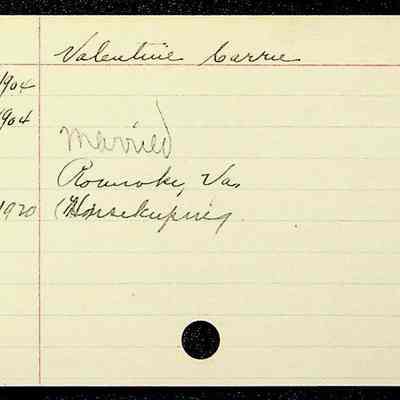 Valentine Carrie
1904
1904
Married
Roanoke, Va.
1920 (Housekeeping